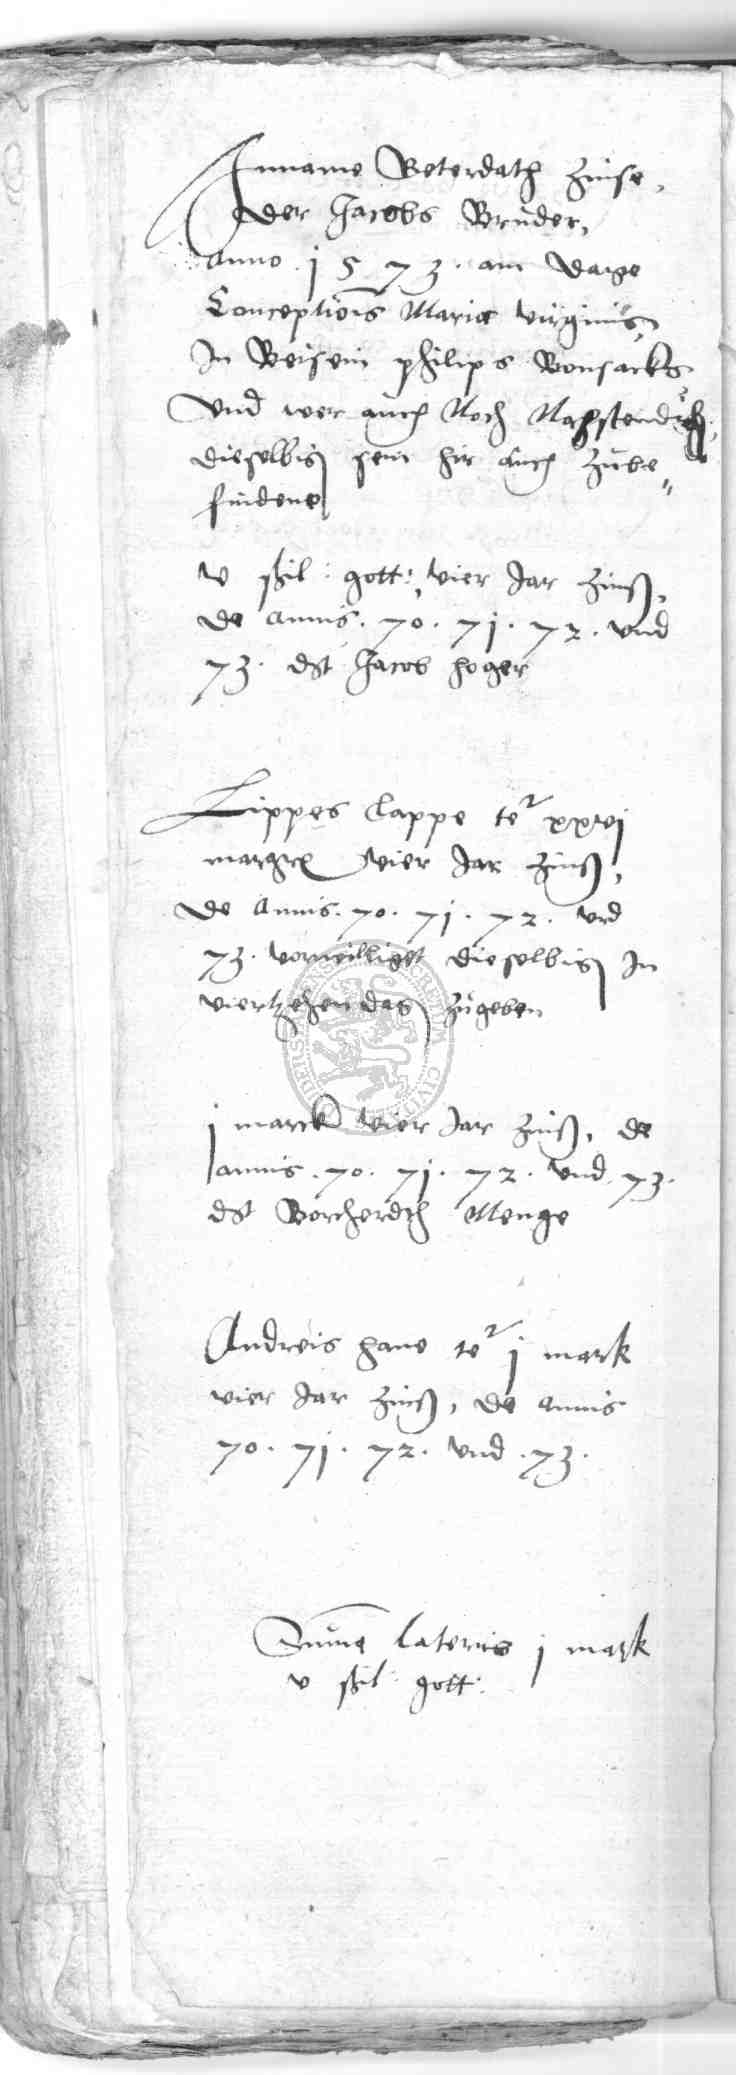 Inname Beterdath Zinse,
der Jacobs Brüder,
Anno 1573. am Dage
Conceptiois Maria virginis,
In Beisein philips Bonsacks
Und wer auch Noch Nahstendich,
dieselbig sein hir auch zübe„
findene
v ßil: gott: vier Jar Zinß,
de Annis. 70. 71. 72. Und
73. dst Jacob hoger
Lippes lappe ter xxvj
margrs vier Jar Zinß,
de Annis. 70. 71. 72. und
73. vorwilliget dieselbig In
viertzehen dag zügeben
j marck vier Jar Zinß, de
annis. 70. 71. 72. Und 73.
dst Borcherdth Menge
Andreis hane ter j mark
vier Jar Zinß, de Annis
70. 71. 72. Und. 73.
Suma lateris j mark
v ßil: gott: